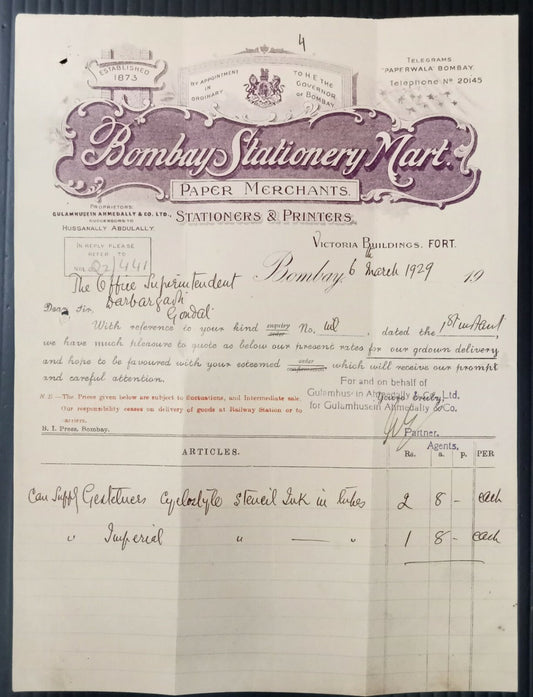 4
ESTABLISHED
1873
BY APPOINTMENT
IN
ORDINARY
TO H.E. THE
GOVERNOR
OF BOMBAY.
TELEGRAMS
"PAPERWALA" BOMBAY.
Telephone No 20145
Bombay Stationery Mart.
PAPER MERCHANTS.
STATIONERS & PRINTERS
PROPRIETORS:
GULAMHUSEIN AHMEDALLY & CO. LTD.,
SUCCESSORS TO
HUSSANALLY ABDULALLY.
IN REPLY PLEASE
REFER TO
22/441
VICTORIA BUILDINGS, FORT.
Bombay, 6th March 1929 19
The Office Superintendent
Darbargadh
Gondal
Dear Sir,
With reference to your kind enquiry order No. nil, dated the 1st instant,
we have much pleasure to quote as below our present rates for our godown delivery
and hope to be favoured with your esteemed order which will receive our prompt
and careful attention.
N.B.—The Prices given below are subject to fluctuations, and intermediate sale.
Our responsibility ceases on delivery of goods at Railway Station or to
carriers.
B. I. Press, Bombay.
For and on behalf of
Gulamhusein Ahmedally & Co., Ltd.
Yours truly,
for Gulamhusein Ahmedally & Co.
Partner.
Agents,
ARTICLES. Rs. a. p. PER
Can Supply Gestetners Cyclostyle Stencil Ink in tubes 2 8 - each
" Imperial " — " 1 8 - each